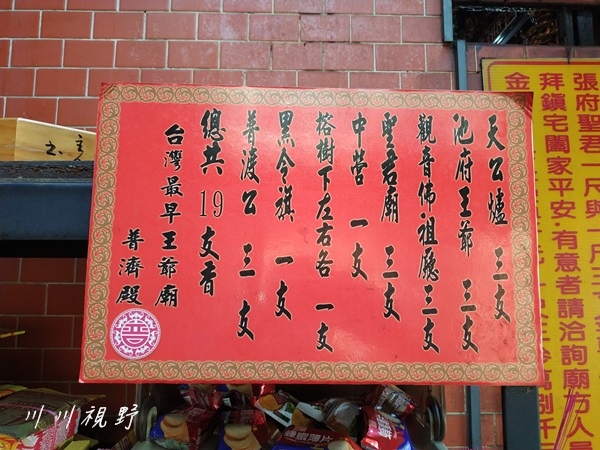 天公爐 三支
池府王爺 三支
觀音佛祖廳三支
聖君廟 三支
中營 一支
榕樹下左右各 一支
黑令旗 一支
普渡公 三支
總共19支香
台灣最早王爺廟
普濟殿
張府聖君一尺與一尺三
拜鎮宅闔家平安·有意者請洽詢廟方人員
川川視野